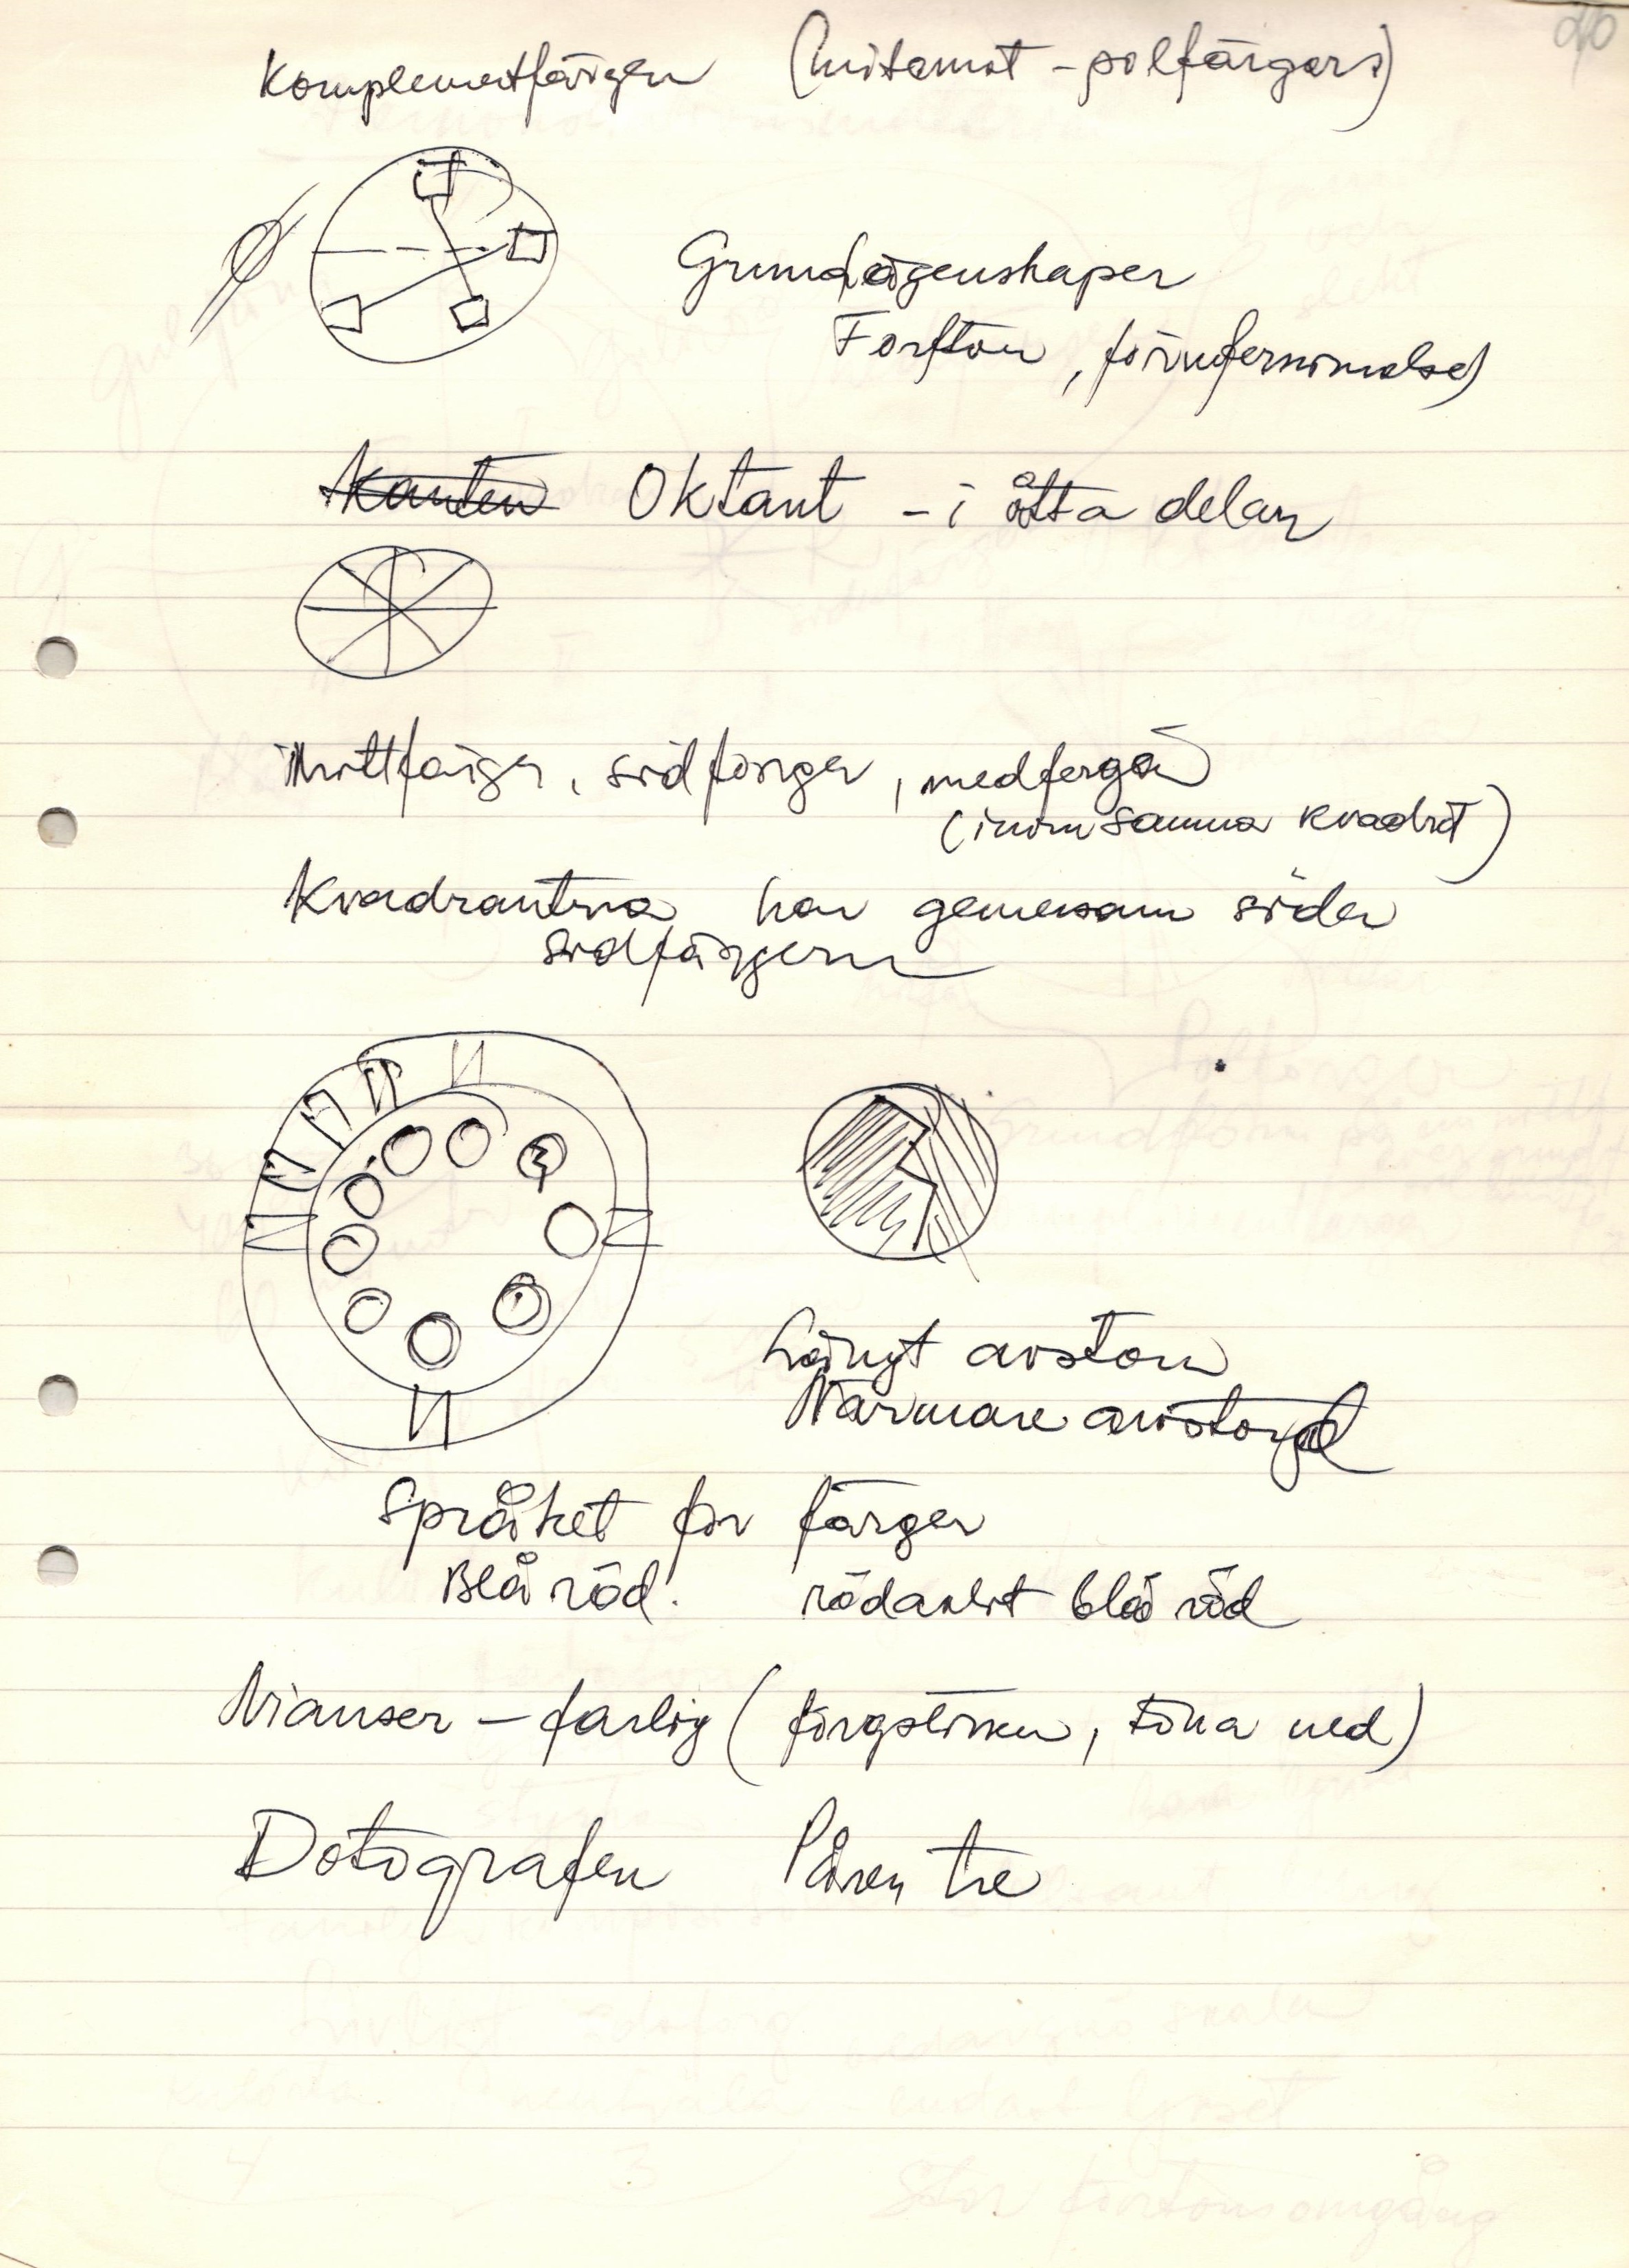 Komplementfärger (mitemot - polfärgers)
Grundegenskaper
Färfton, 
Kanten Oktant - i åtta delar
mittfärger, sidfärger, medfärger
(inom samma kvadrt)
Kvadrantna har gemensam sider
sidfärgern
Långt avston
Närmare avstond
Språket för färger
Blå röd. rödaktit blå röd
Nianser - farlig ( , tona ned)
Dotografen